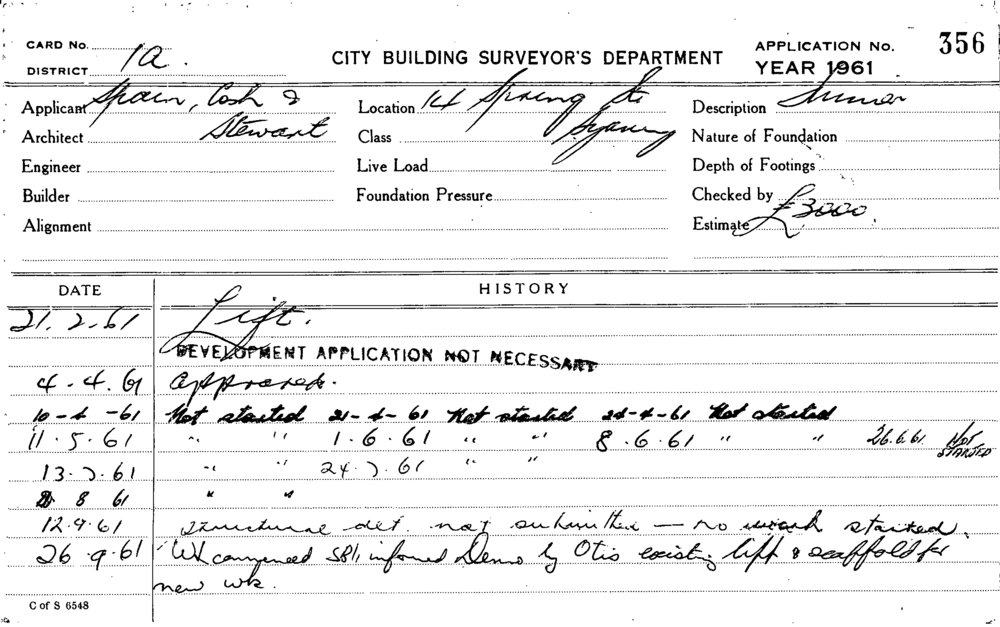 CARD No. 1A.
DISTRICT
CITY BUILDING SURVEYOR'S DEPARTMENT
APPLICATION No. 356
YEAR 1961
Applicant Spain, Cosh &
Architect Stewart
Engineer
Builder
Alignment
Location 14 Spring St
Class Sydney
Live Load
Foundation Pressure
Description
Nature of Foundation
Depth of Footings
Checked by
Estimate £3000.
DATE HISTORY
21.2.61 Lift.
DEVELOPMENT APPLICATION NOT NECESSARY
4-4.61 Approved.
10-4-61 Not started 21-4-61 Not started 24-4-61 Not started
11.5.61 " " 1.6.61 " " 8.6.61 " " 26.6.61 NOT STARTED
13.7.61 " " 24.7.61 " "
8 61 " "
12.9.61 Structural det. not submitted — no work started.
26.9.61 Wk commenced informed Demo by Otis existing lift & scaffold for
new wk.
C of S 6548